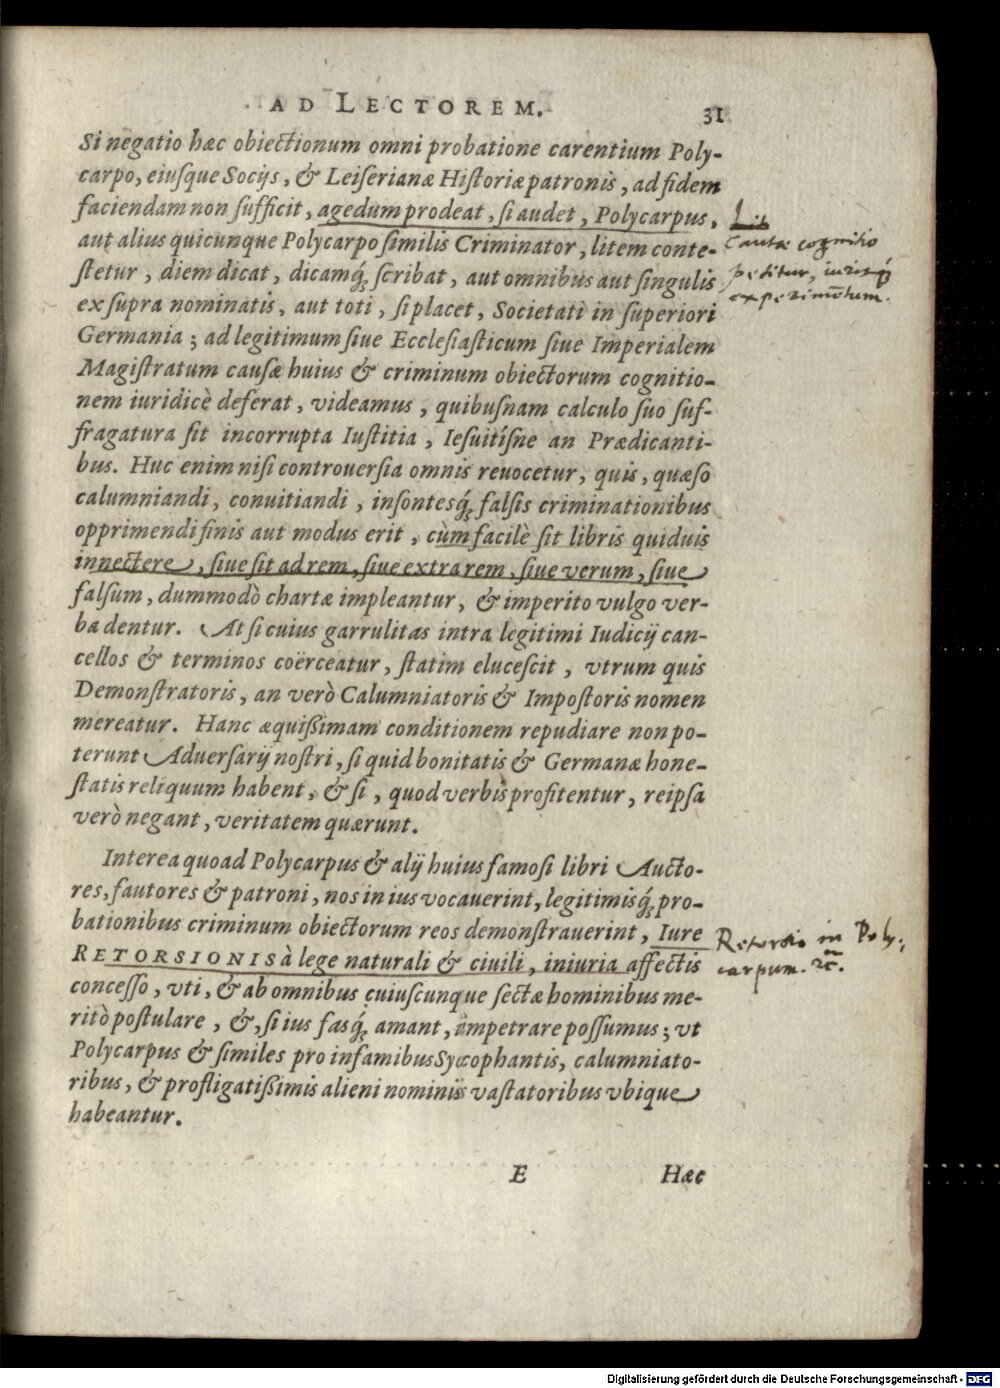 AD LECTOREM. 31
Si negatio hæc obiectionum omni probatione carentium Poly-
carpo, eiuſque Socijs, & Leiſerianæ Hiſtoriæ patronis, ad fidem
faciendam non ſufficit, agedum prodeat, ſi audet, Polycarpus,
aut alius quicunque Polycarpo ſimilis Criminator, litem conte-
ſtetur, diem dicat, dicamq́; ſcribat, aut omnibus aut ſingulis
ex ſupra nominatis, aut toti, ſi placet, Societati in ſuperiori
Germania; ad legitimum ſiue Eccleſiaſticum ſiue Imperialem
Magiſtratum cauſæ huius & criminum obiectorum cognitio-
nem iuridicè deferat, videamus, quibuſnam calculo ſuo ſuf-
fragatura ſit incorrupta Iuſtitia, Ieſuitíſne an Prædicanti-
bus. Huc enim niſi controuerſia omnis reuocetur, quis, quæſo
calumniandi, conuitiandi, inſontesq́; falſis criminationibus
opprimendi finis aut modus erit, cùm facilè ſit libris quiduis
innectere, ſiue ſit ad rem, ſiue extra rem, ſiue verum, ſiue
falſum, dummodò chartæ impleantur, & imperito vulgo ver-
ba dentur. At ſi cuius garrulitas intra legitimi Iudicij can-
cellos & terminos coërceatur, ſtatim eluceſcit, vtrum quis
Demonſtratoris, an verò Calumniatoris & Impoſtoris nomen
mereatur. Hanc æquißimam conditionem repudiare non po-
terunt Aduerſarij noſtri, ſi quid bonitatis & Germanæ hone-
ſtatis reliquum habent, & ſi, quod verbis profitentur, reipſa
verò negant, veritatem quærunt.
Interea quoad Polycarpus & alij huius famoſi libri Aucto-
res, fautores & patroni, nos in ius vocauerint, legitimisq́; pro-
bationibus criminum obiectorum reos demonſtrauerint, Iure
RETORSIONIS à lege naturali & ciuili, iniuria affectis
conceſſo, vti, & ab omnibus cuiuſcunque ſectæ hominibus me-
ritò poſtulare, &, ſi ius fasq́; amant, impetrare poſſumus; vt
Polycarpus & ſimiles pro infamibus Sycophantis, calumniato-
ribus, & profligatißimis alieni nominis vaſtatoribus vbique
habeantur.
E Hæc
Lit
Causæ cognitio
petitur, iurisq́
experimētum.
Retorsio in Poly-
carpum.
Digitalisierung gefördert durch die Deutsche Forschungsgemeinschaft - DFG